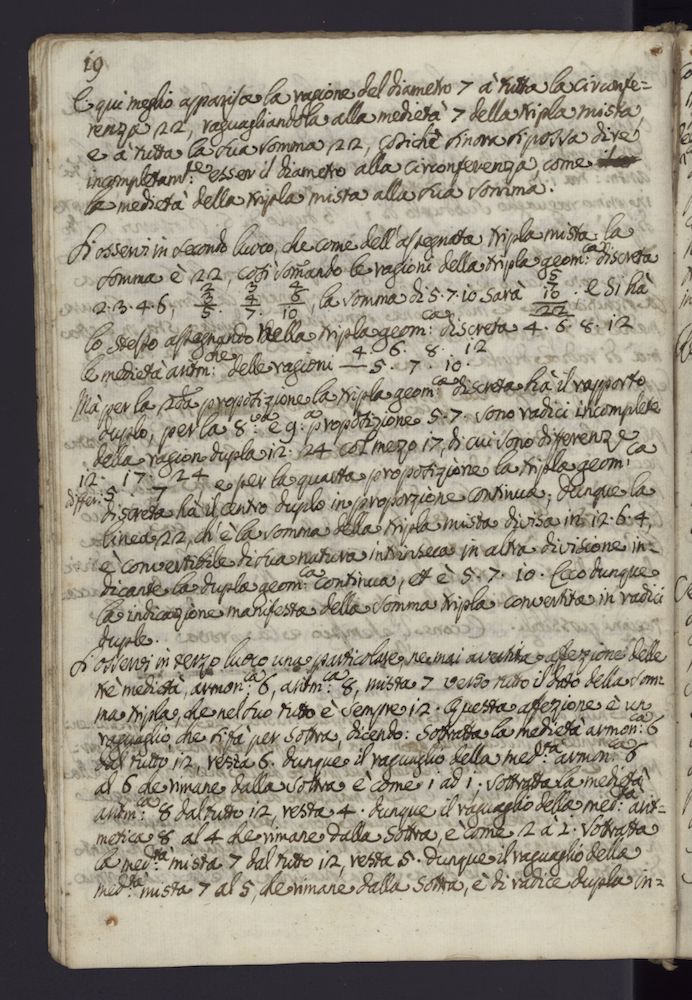 19
E qui meglio apparisce la ragione del diametro 7 à tutta la circonfe=
renza 22, raguagliandola alla medietà 7 della tripla mista,
e à tutta la sua somma 22, cosiche sinora si possa dire
incompletam.te esser il diametro alla circonferenza, come
la medietà della tripla mista alla sua somma.
Si osservi in secondo luoco, che come dell'assegnata tripla mista la
somma è 22, così somando le ragioni della tripla geom.ca discreta
2·3·4·6, 2/3/5· 3/4/7· 4/6/10, la somma di 5·7·10 sarà 5/7/10/22. e si hà
lo stesso assegnando nella tripla geom.ca discreta 4·6·8·12
le medietà aritm.che delle ragioni 4·6·8·12
— 5·7·10·
Mà per la 2da propositione la tripla geom.ca discreta hà il rapporto
duplo, per la 8.va e 9.a propositione 5·7· sono radici incomplete
della ragion dupla 12·24 col mezo 17, di cui sono differenze
12· 17· 24 e per la quarta propositione la tripla geom.ca
differ: 5· 7
discreta hà il centro duplo in proporzione continua; Dunque la
linea 22, ch'è la somma della tripla mista divisa in 12·6·4,
è convertibile di sua natura intrinseca in altra divisione in=
dicante la dupla geom.ca continua, et è 5·7·10· Ecco dunque
la indicazione manifesta della somma tripla convertita in radici
duple.
Si osservi in terzo luoco una particolare, ne mai avertita affezione delle
trè medietà, armon.ca 6, aritm.ca 8, mista 7 verso tutto il dato della som=
ma tripla, che nel suo tutto è sempre 12· Questa affezione è un
raguaglio, che si fà per sottra, dicendo: Sottratta la medietà armon.ca 6
dal tutto 12, resta 6· dunque il raguaglio della med.tà armon.ca 6
al 6 che rimane dalla sottra è come 1 ad 1· Sottratta la medietà
aritm.ca 8 dal tutto 12, resta 4· dunque il raguaglio della med.tà arit=
metica 8 al 4 che rimane dalla sottra, è come 2 à 1· Sottratta
la med.tà mista 7 dal tutto 12, resta 5· Dunque il raguaglio della
med.tà mista 7 al 5, che rimane dalla sottra, è di radice dupla in=